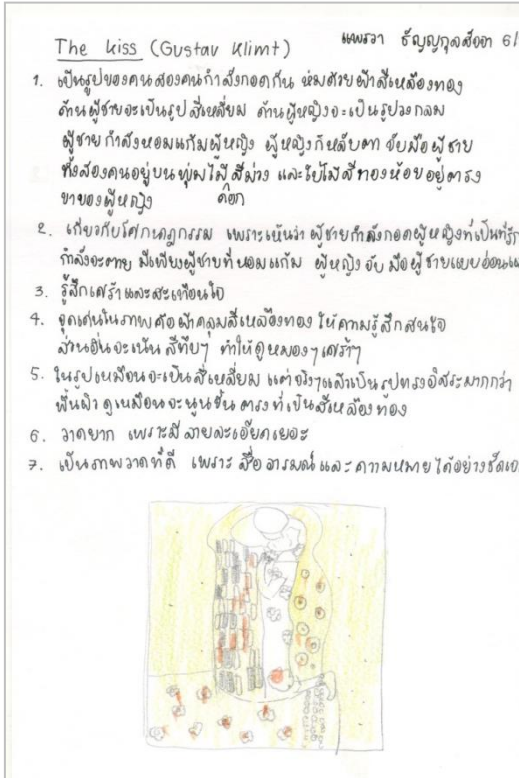 The kiss (Gustav Klimt)
แพรวา ธัญญกุลสัจจา 6/
1. เป็นรูปของคนสองคนกำลังกอดกัน ห่มด้วยผ้าสีเหลืองทอง
ด้านผู้ชายจะเป็นรูปสี่เหลี่ยม ด้านผู้หญิงจะเป็นรูปวงกลม
ผู้ชายกำลังหอมแก้มผู้หญิง ผู้หญิงก็หลับตา จับมือผู้ชาย
ทั้งสองคนอยู่บนพุ่มไม้สีม่วง และใบไม้สีทองห้อยอยู่ตรง
ดอก
ขาของผู้หญิง
2. เกี่ยวกับโศกนาฏกรรม เพราะเห็นว่า ผู้ชายกำลังกอดผู้หญิงที่เป็นที่รัก
กำลังจะตาย มีเพียงผู้ชายที่หอมแก้ม ผู้หญิงจับมือผู้ชายแบบอ่อนแ
3. รู้สึกเศร้าและสะเทือนใจ
4. จุดเด่นในภาพคือผ้าคลุมสีเหลืองทอง ให้ความรู้สึกสนใจ
ส่วนอื่นจะเน้นสีทึบๆ ทำให้ดูหมองๆ เศร้าๆ
5. ในรูปเหมือนจะเป็นสี่เหลี่ยม แต่จริงๆแล้วเป็นรูปทรงอิสระมากกว่า
พื้นผิวดูเหมือนจะนูนขึ้นตรงที่เป็นสีเหลืองทอง
6. วาดยาก เพราะมีลายละเอียดเยอะ
7. เป็นภาพวาดที่ดี เพราะ สื่ออารมณ์และความหมายได้อย่างชัดเจ